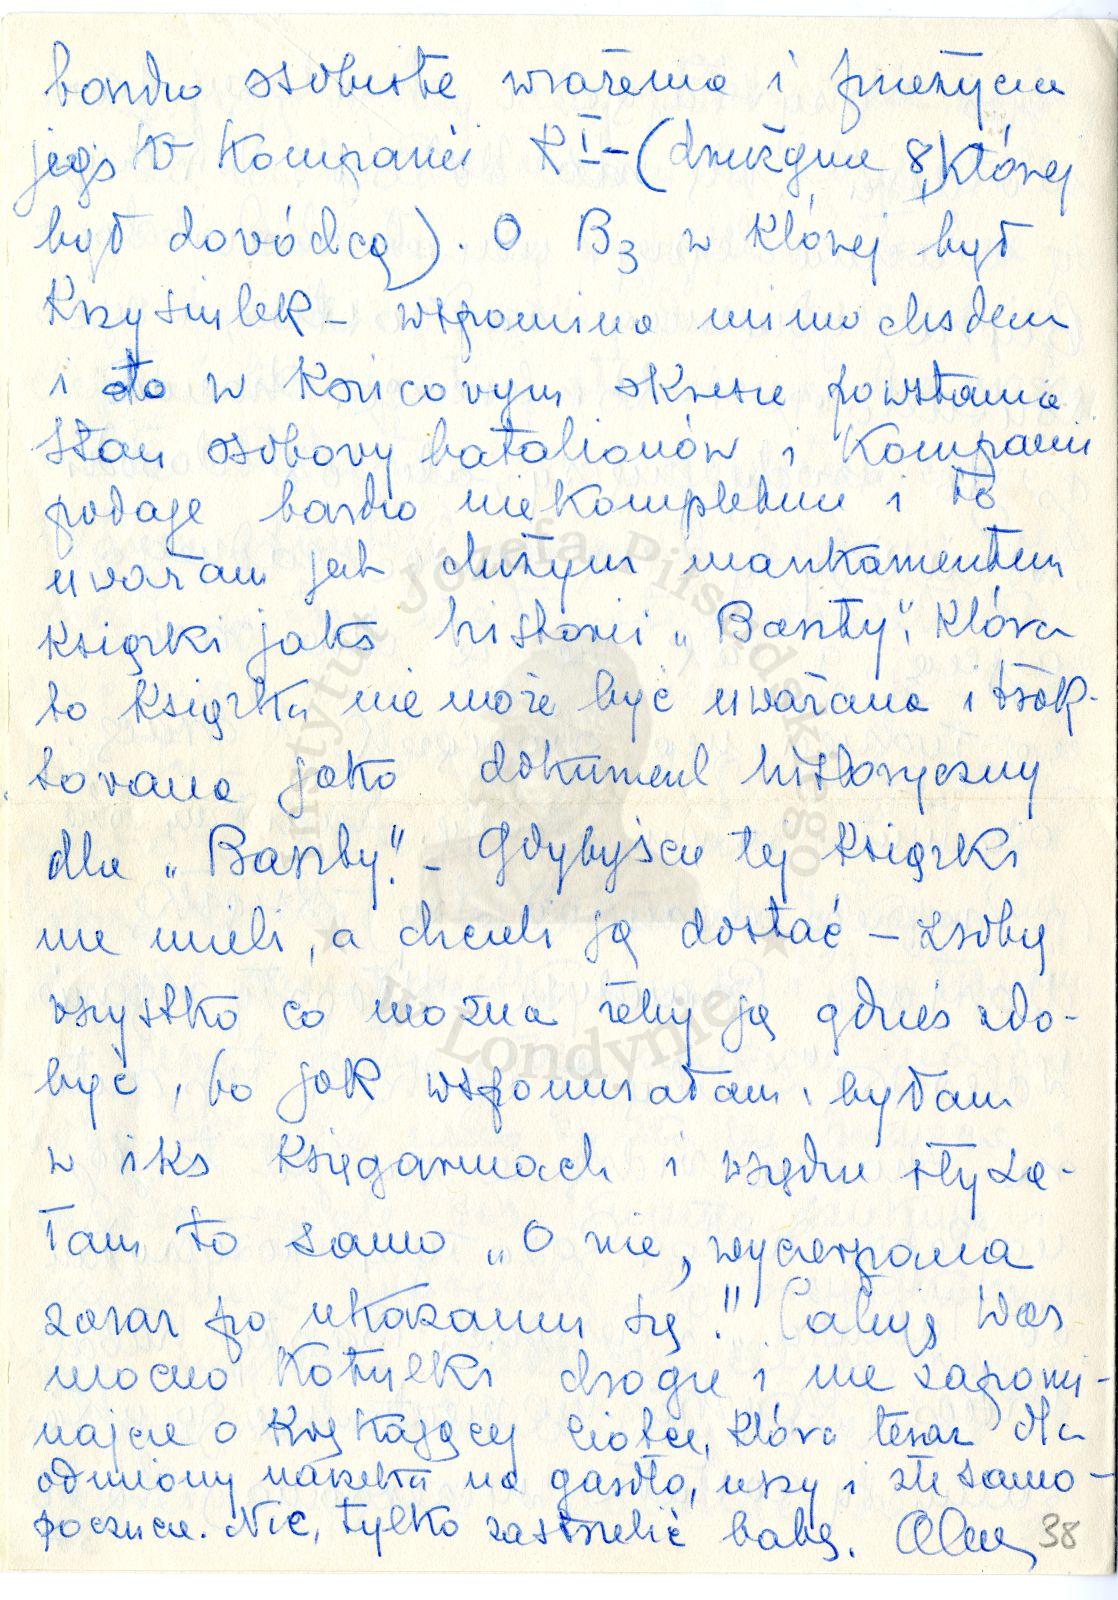 bardzo osobiste wrażenia i przeżycia
jego w Kompanii K I – (drużyna 8, której
był dowódcą). O B3 w której był
Krzysiulek – wspomina mimochodem
i to w końcowym okresie powstania
Stan osobowy batalionów i Kompanii
podaje bardzo niekompletnie i to
uważam jest dużym mankamentem
książki jako historii „Baszty", która
to książka nie może być uważana i trak-
towana jako dokument historyczny
dla „Baszty". – Gdybyście tej książki
nie mieli, a chcieli ją dostać – zrobię
wszystko co można żeby ją gdzieś zdo-
być, bo jak wspominałam, byłam
w iks księgarniach i wszędzie słysza-
łam to samo „O nie, wyczerpana
zaraz po ukazaniu się"! Całuję Was
mocno Kotulki drogie i nie zapomi-
najcie o Kwękającej Ciotce, która teraz dla
odmiany narzeka na gardło, uszy i złe samo-
poczucie. Nic, tylko zastrzelić babę.
38
Instytut Józefa Piłsudskiego
w Londynie